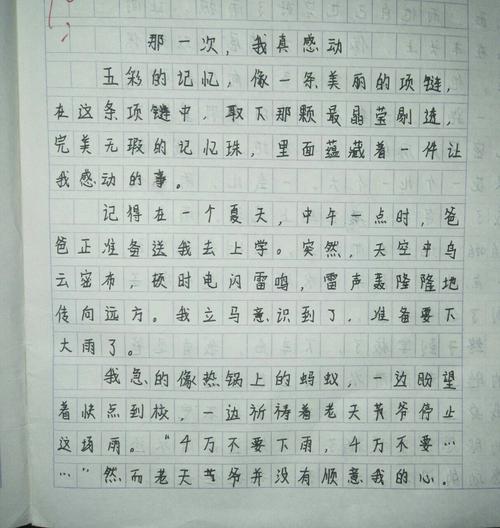 那一次，我真感动
五彩的记忆，像一条美丽的项链，
在这条项链中，取下那颗最晶莹剔透，
完美无瑕的记忆珠，里面蕴藏着一件让
我感动的事。
记得在一个夏天，中午一点时，爸
爸正准备送我去上学。突然，天空中乌
云密布，顿时电闪雷鸣，雷声轰隆隆地
传向远方。我立马意识到了，准备要下
大雨了。
我急的像热锅上的蚂蚁，一边盼望
着快点到校，一边祈祷着老天爷爷停止
这场雨。“千万不要下雨，千万不要…
…”然而老天爷爷并没有顺意我的心。